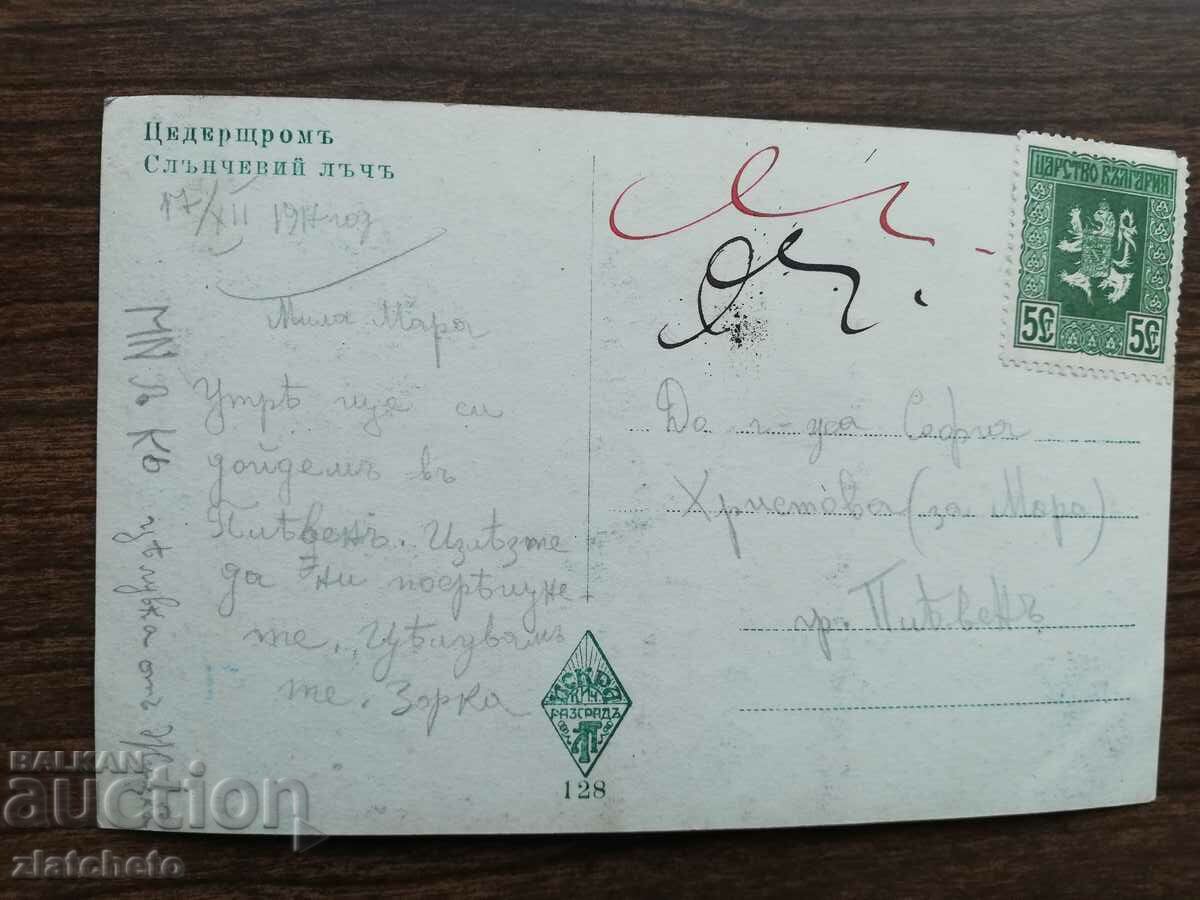 Цедерщромъ
Слънчевий лъчъ
17/XII 1917 год
Мила Мара
Утрѣ ща си
дойдемъ въ
Плѣвенъ. Излѣзте
да ни посрѣщне
те. Цѣлувамъ
те. Зорка
цѣлувка отъ
ЦАРСТВО БЪЛГАРИЯ
5 Ст 5 Ст
До г-ца София
Христова (за Мара)
гр. Плѣвенъ
ИСКРА
КИН
РАЗГРАДЪ
128
BALKAN
auction
zlatcheto